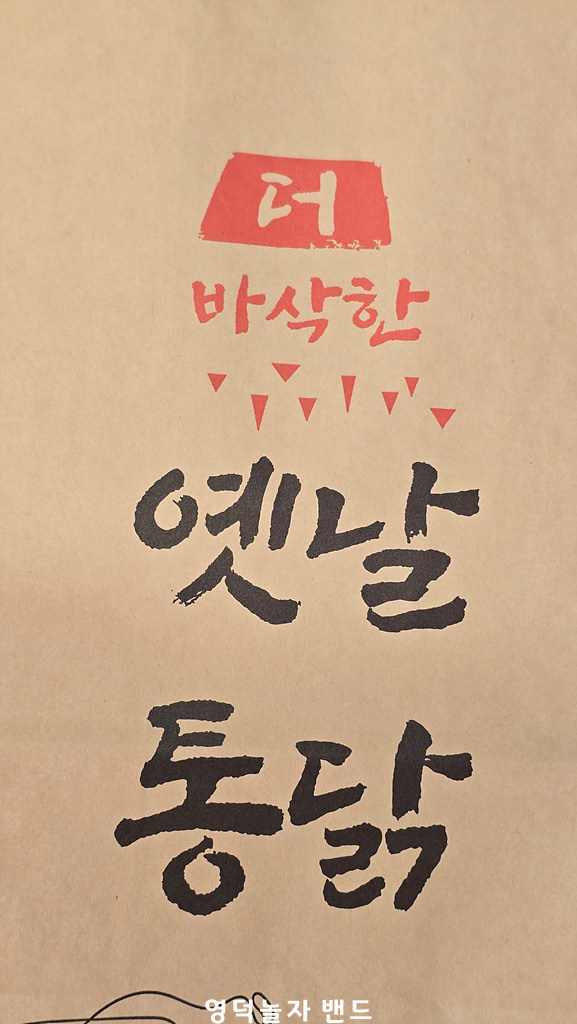 더
바삭한
옛날
통닭
영덕놀자 밴드